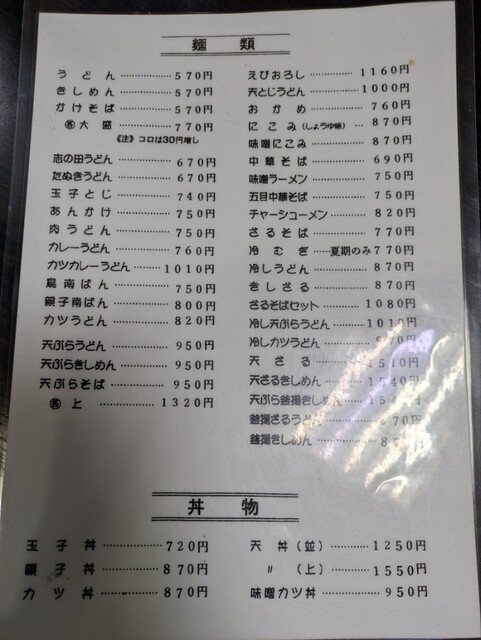 麺類
うどん 570円
きしめん 570円
かけそば 570円
大盛 770円
《注》コロは30円増し
志の田うどん 670円
たぬきうどん 670円
玉子とじ 740円
あんかけ 750円
肉うどん 750円
カレーうどん 760円
カツカレーうどん 1010円
鳥南ばん 750円
親子南ばん 800円
カツうどん 820円
天ぷらうどん 950円
天ぷらきしめん 950円
天ぷらそば 950円
上 1320円
えびおろし 1160円
天とじうどん 1000円
おかめ 760円
にこみ(しょうゆ味) 870円
味噌にこみ 870円
中華そば 690円
味噌ラーメン 750円
五目中華そば 750円
チャーシューメン 820円
ざるそば 770円
冷むぎ 夏期のみ770円
冷しうどん 870円
きしざる 870円
ざるそばセット 1080円
冷し天ぷらうどん 1010円
冷しカツうどん
天ざる
天ざるきしめん 1540円
天ぷら釜揚きしめん
釜揚ざるうどん
釜揚きしめん
丼物
玉子丼 720円
親子丼 870円
カツ丼 870円
天丼(並) 1250円
〃(上) 1550円
味噌カツ丼 950円